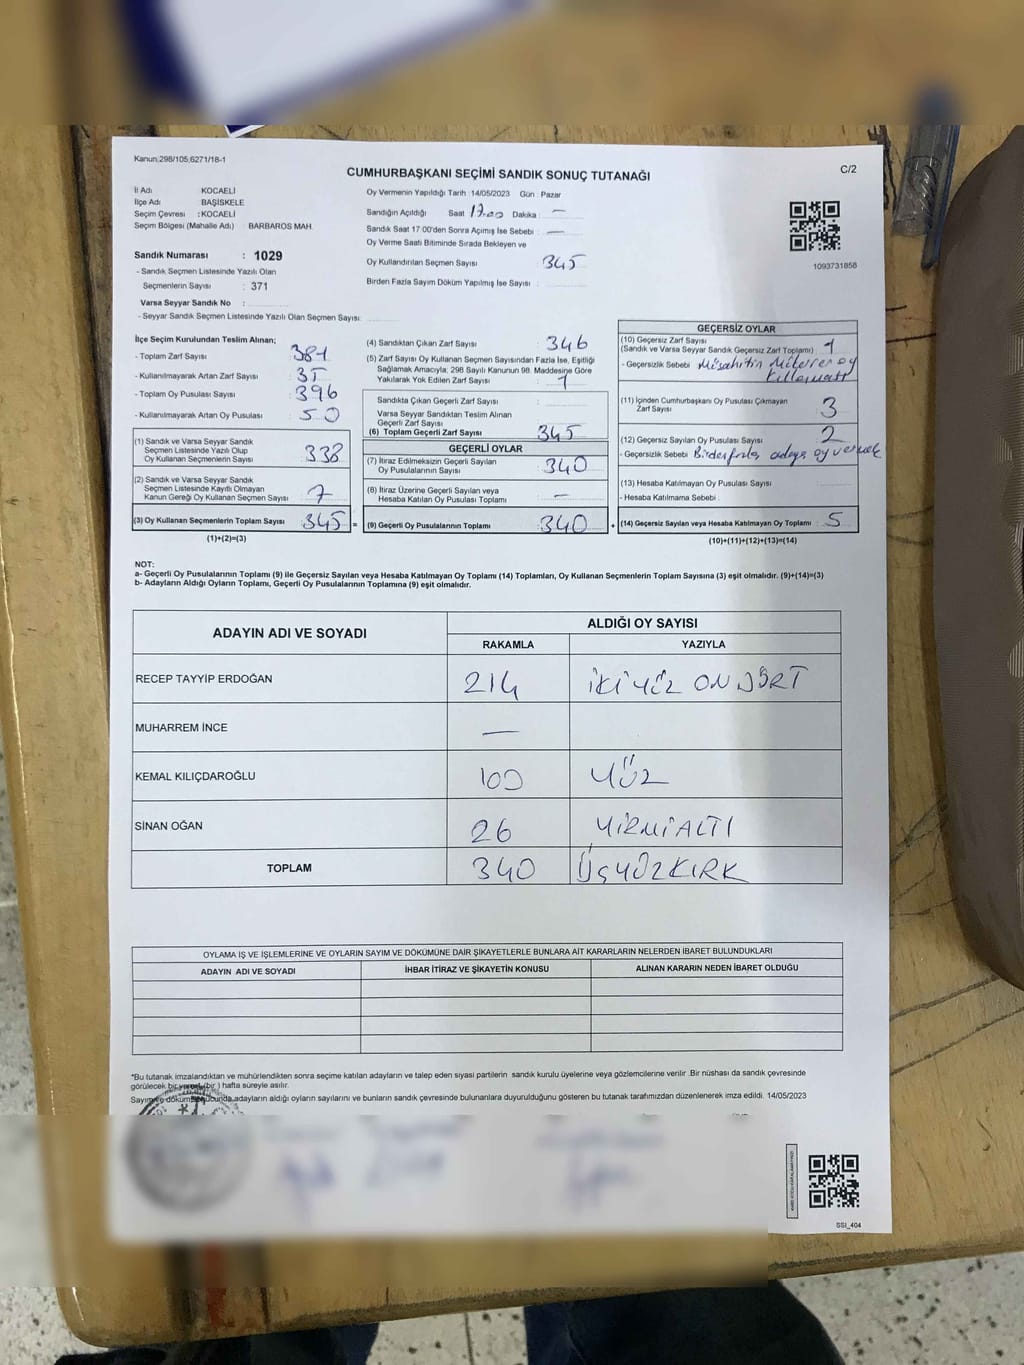 Kanun:298/105,6271/18-1
CUMHURBAŞKANI SEÇİMİ SANDIK SONUÇ TUTANAĞI
C/2
İl Adı KOCAELİ
İlçe Adı BAŞİSKELE
Seçim Çevresi : KOCAELİ
Seçim Bölgesi (Mahalle Adı) BARBAROS MAH.
Sandık Numarası : 1029
- Sandık Seçmen Listesinde Yazılı Olan
Seçmenlerin Sayısı : 371
Varsa Seyyar Sandık No :
- Seyyar Sandık Seçmen Listesinde Yazılı Olan Seçmen Sayısı:
Oy Vermenin Yapıldığı Tarih :14/05/2023 Gün : Pazar
Sandığın Açıldığı Saat 17.00 Dakika : —
Sandık Saat 17:00'den Sonra Açımış İse Sebebi : —
Oy Verme Saati Bitiminde Sırada Bekleyen ve
Oy Kullandırılan Seçmen Sayısı : 345
Birden Fazla Sayım Döküm Yapılmış İse Sayısı :
1093731858
İlçe Seçim Kurulundan Teslim Alınan;
- Toplam Zarf Sayısı : 381
- Kullanılmayarak Artan Zarf Sayısı : 35
- Toplam Oy Pusulası Sayısı : 396
- Kullanılmayarak Artan Oy Pusulası : 50
(1) Sandık ve Varsa Seyyar Sandık
Seçmen Listesinde Yazılı Olup
Oy Kullanan Seçmenlerin Sayısı : 338
(2) Sandık ve Varsa Seyyar Sandık
Seçmen Listesinde Kayıtlı Olmayan
Kanun Gereği Oy Kullanan Seçmen Sayısı : 7
(3) Oy Kullanan Seçmenlerin Toplam Sayısı : 345 =
(1)+(2)=(3)
(4) Sandıktan Çıkan Zarf Sayısı : 346
(5) Zarf Sayısı Oy Kullanan Seçmen Sayısından Fazla İse, Eşitliği
Sağlamak Amacıyla; 298 Sayılı Kanunun 98. Maddesine Göre
Yakılarak Yok Edilen Zarf Sayısı : 1
Sandıkta Çıkan Geçerli Zarf Sayısı :
Varsa Seyyar Sandıktan Teslim Alınan
Geçerli Zarf Sayısı :
(6) Toplam Geçerli Zarf Sayısı : 345
GEÇERLİ OYLAR
(7) İtiraz Edilmeksizin Geçerli Sayılan
Oy Pusulalarının Sayısı : 340
(8) İtiraz Üzerine Geçerli Sayılan veya
Hesaba Katılan Oy Pusulası Toplamı : —
(9) Geçerli Oy Pusulalarının Toplamı : 340 +
GEÇERSİZ OYLAR
(10) Geçersiz Zarf Sayısı
(Sandık ve Varsa Seyyar Sandık Geçersiz Zarf Toplamı) : 1
- Geçersizlik Sebebi :
(11) İçinden Cumhurbaşkanı Oy Pusulası Çıkmayan
Zarf Sayısı : 3
(12) Geçersiz Sayılan Oy Pusulası Sayısı : 2
- Geçersizlik Sebebi : Birden fazla adaya oy vermek
(13) Hesaba Katılmayan Oy Pusulası Sayısı :
- Hesaba Katılmama Sebebi :
(14) Geçersiz Sayılan veya Hesaba Katılmayan Oy Toplamı : 5
(10)+(11)+(12)+(13)=(14)
NOT:
a- Geçerli Oy Pusulalarının Toplamı (9) ile Geçersiz Sayılan veya Hesaba Katılmayan Oy Toplamı (14) Toplamları, Oy Kullanan Seçmenlerin Toplam Sayısına (3) eşit olmalıdır. (9)+(14)=(3)
b- Adayların Aldığı Oyların Toplamı, Geçerli Oy Pusulalarının Toplamına (9) eşit olmalıdır.
ADAYIN ADI VE SOYADI
ALDIĞI OY SAYISI
RAKAMLA YAZIYLA
RECEP TAYYİP ERDOĞAN 214 İKİYÜZ ONDÖRT
MUHARREM İNCE —
KEMAL KILIÇDAROĞLU 100 YÜZ
SİNAN OĞAN 26 YİRMİALTI
TOPLAM 340 ÜÇYÜZKIRK
OYLAMA İŞ VE İŞLEMLERİNE VE OYLARIN SAYIM VE DÖKÜMÜNE DAİR ŞİKAYETLERLE BUNLARA AİT KARARLARIN NELERDEN İBARET BULUNDUKLARI
ADAYIN ADI VE SOYADI İHBAR İTİRAZ VE ŞİKAYETİN KONUSU ALINAN KARARIN NEDEN İBARET OLDUĞU
*Bu tutanak imzalandıktan ve mühürlendikten sonra seçime katılan adayların ve talep eden siyasi partilerin sandık kurulu üyelerine veya gözlemcilerine verilir .Bir nüshası da sandık çevresinde
görülecek bir yere (bir ) hafta süreyle asılır.
Sayım ve döküm sonucunda adayların aldığı oyların sayılarını ve bunların sandık çevresinde bulunanlara duyurulduğunu gösteren bu tutanak tarafımızdan düzenlenerek imza edildi. 14/05/2023
SSI_404